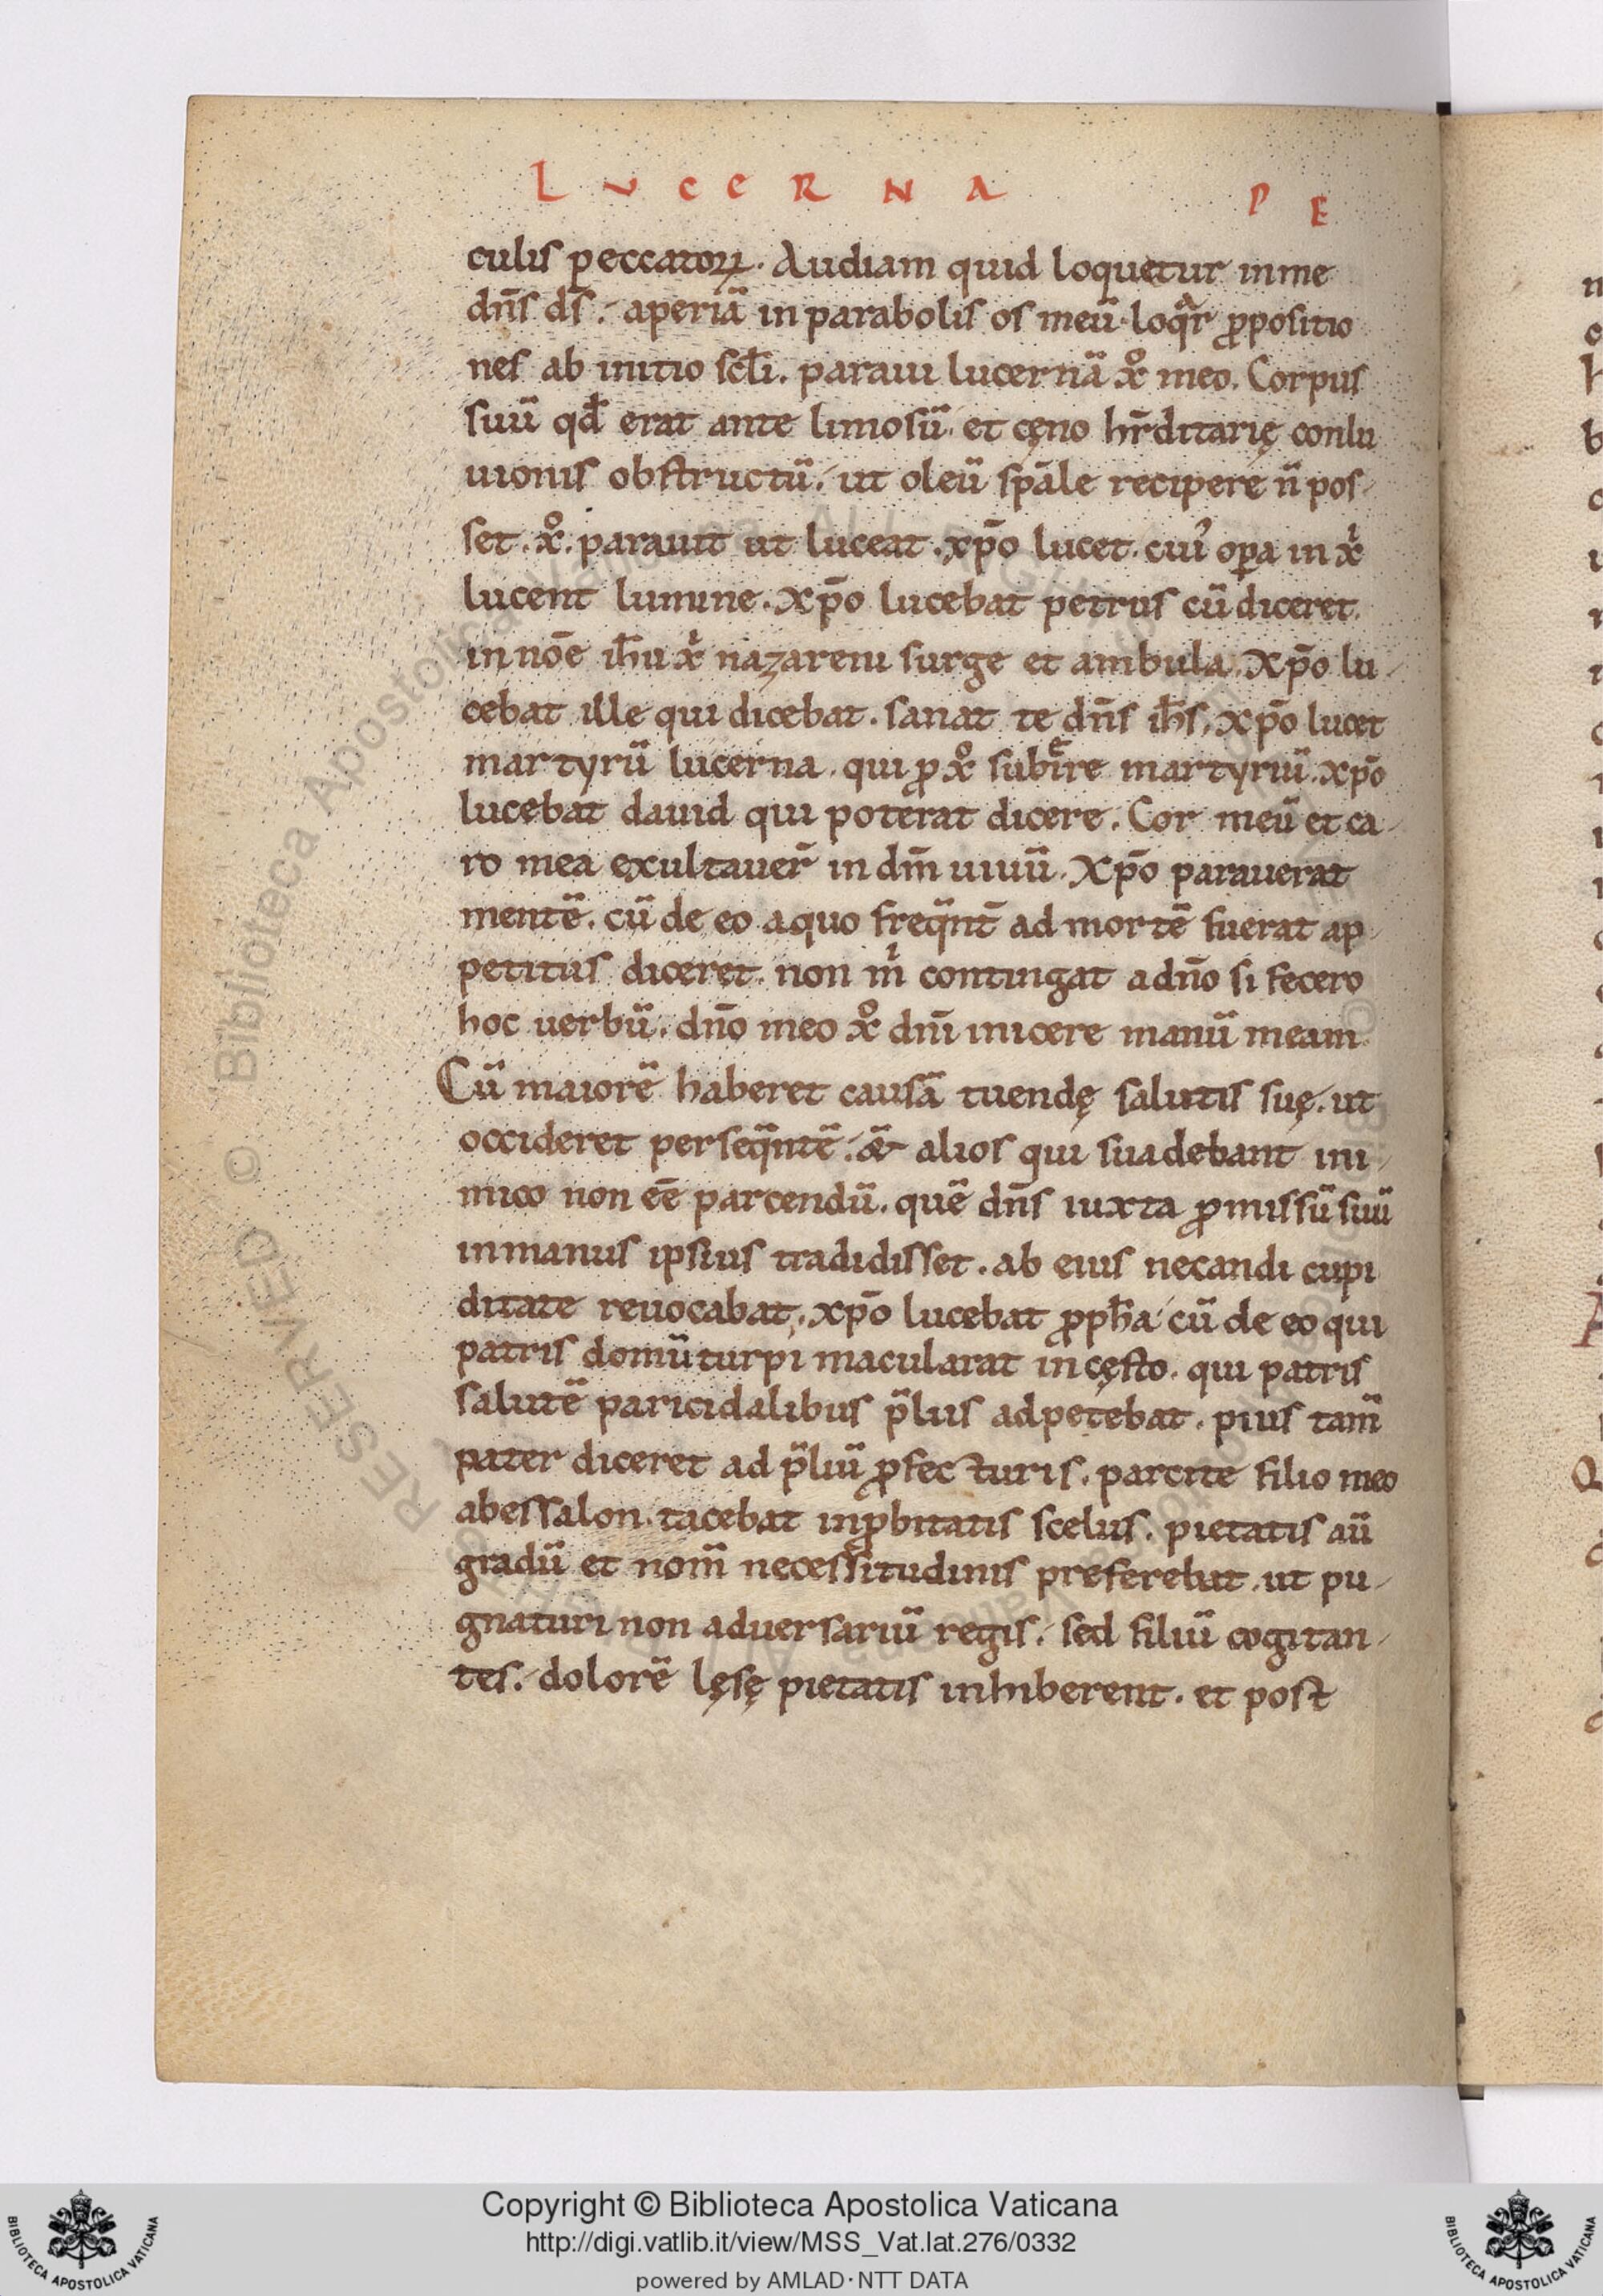 LVCERNA PE
culis peccatoꝝ. Audiam quid loquetur in me
dn̄s ds̄. aperiā in parabolis os meū. loqͣr ꝓpositio
nes ab initio scl̄i. paraui lucernā xº meo. Corpus
suū qd̄ erat ante limosū. et cęno hr̄ditarię conlu
uionis obstructū. ut oleū sp̄ale recipere n̄ pos-
set. xº. parauit ut luceat. xp̄o lucet. cui' oꝑa in xⁱ
lucent lumine. Xp̄o lucebat petrus cū diceret.
in nōe ih̄u xⁱ nazareni surge et ambula. Xp̄o lu-
cebat ille qui dicebat. sanat te dn̄s ih̄s. Xp̄o lucet
martyrū lucerna. qui ꝓ xº subiͤre martyriū. xp̄o
lucebat dauid qui poterat dicere. Cor meū et ca-
ro mea exultauer̄ in dm̄ uiuū. Xp̄o parauerat
mentē. cū de eo a quo freq̄nt̄ ad mortē fuerat ap-
petitus diceret. non mⁱ contingat a dn̄o si fecero
hoc uerbū. dn̄o meo xº dn̄i inicere manū meam.
Cū maiorē haberet causā tuendę salutis suę. ut
occideret perseq̄ntē. &̄ alios qui suadebant ini-
mico non eē parcendū. quē dn̄s iuxta ꝓmissū suū
in manus ipsius tradidisset. ab eius necandi cupi
ditate reuocabat. xp̄o lucebat ꝓph̄a cū de eo qui
patris domū turpi macularat incęsto. qui patris
salutē paricidalibus p̄liis adpetebat. pius tam̄
pater diceret ad p̄liū ꝓfecturis. parcite filio meo
abessalon. tacebat inꝓbitatis scelus. pietatis aū
gradū et nom̄ necessitudinis preferebat. ut pu-
gnaturi non aduersariū regis. sed filiū cogitan-
tes. dolorē lęsę pietatis inhiberent. et post
Copyright © Biblioteca Apostolica Vaticana
http://digi.vatlib.it/view/MSS_Vat.lat.276/0332
powered by AMLAD·NTT DATA